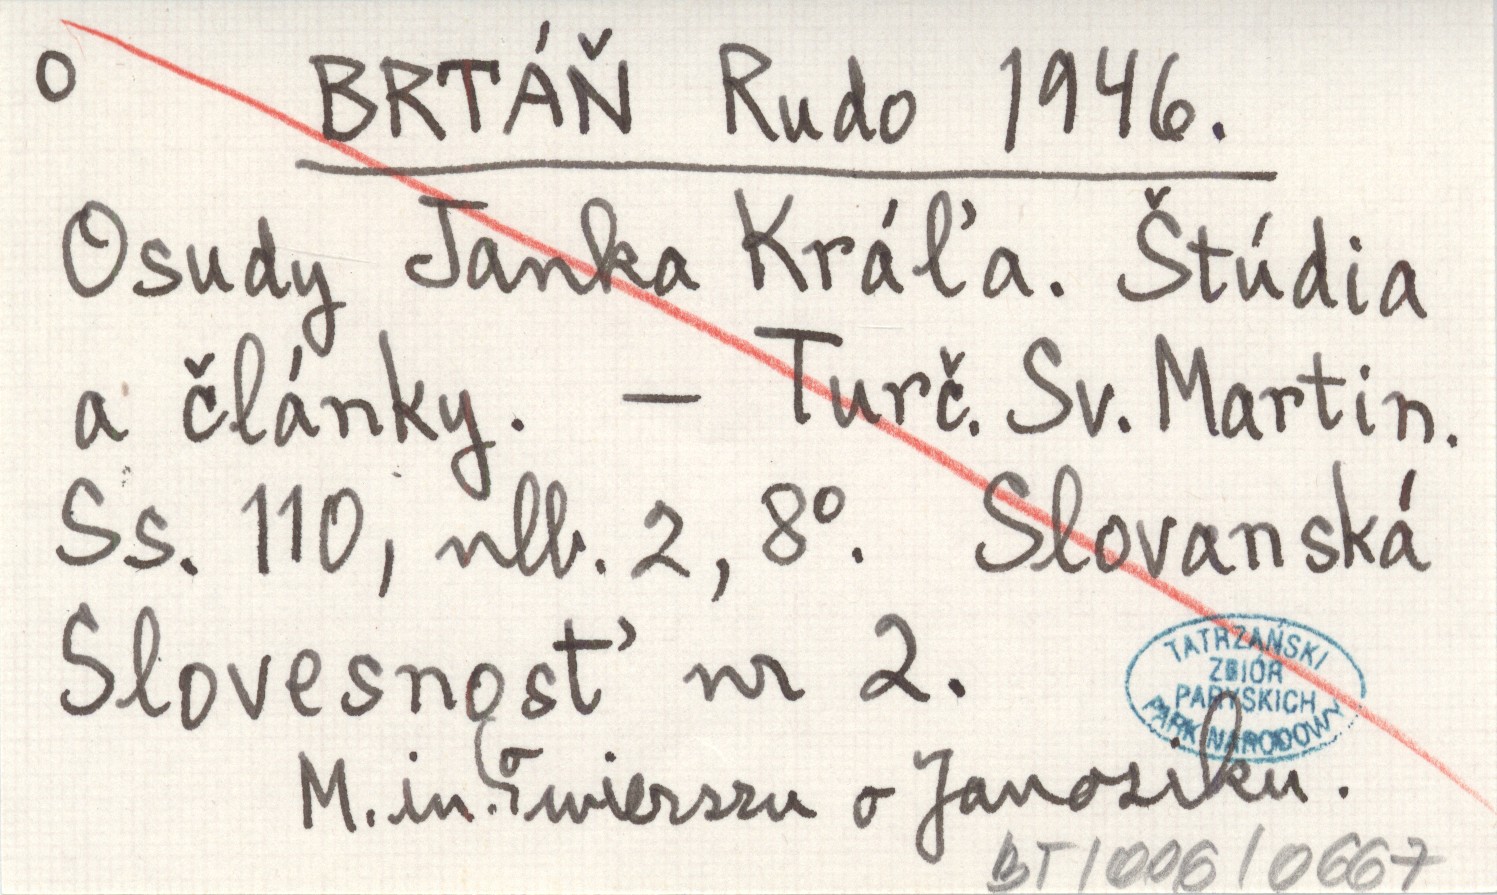 o
BRTÁŇ Rudo 1946.
Osudy Janka Kráľa. Štúdia
a články. — Turč. Sv. Martin.
Ss. 110, nlb. 2, 8°. Slovanská
Slovesnosť nr 2.
TATRZAŃSKI
ZBIÓR
PARYSKICH
PARK NARODOWY
M. in. o wierszu o Janosiku.
BT/006/0667